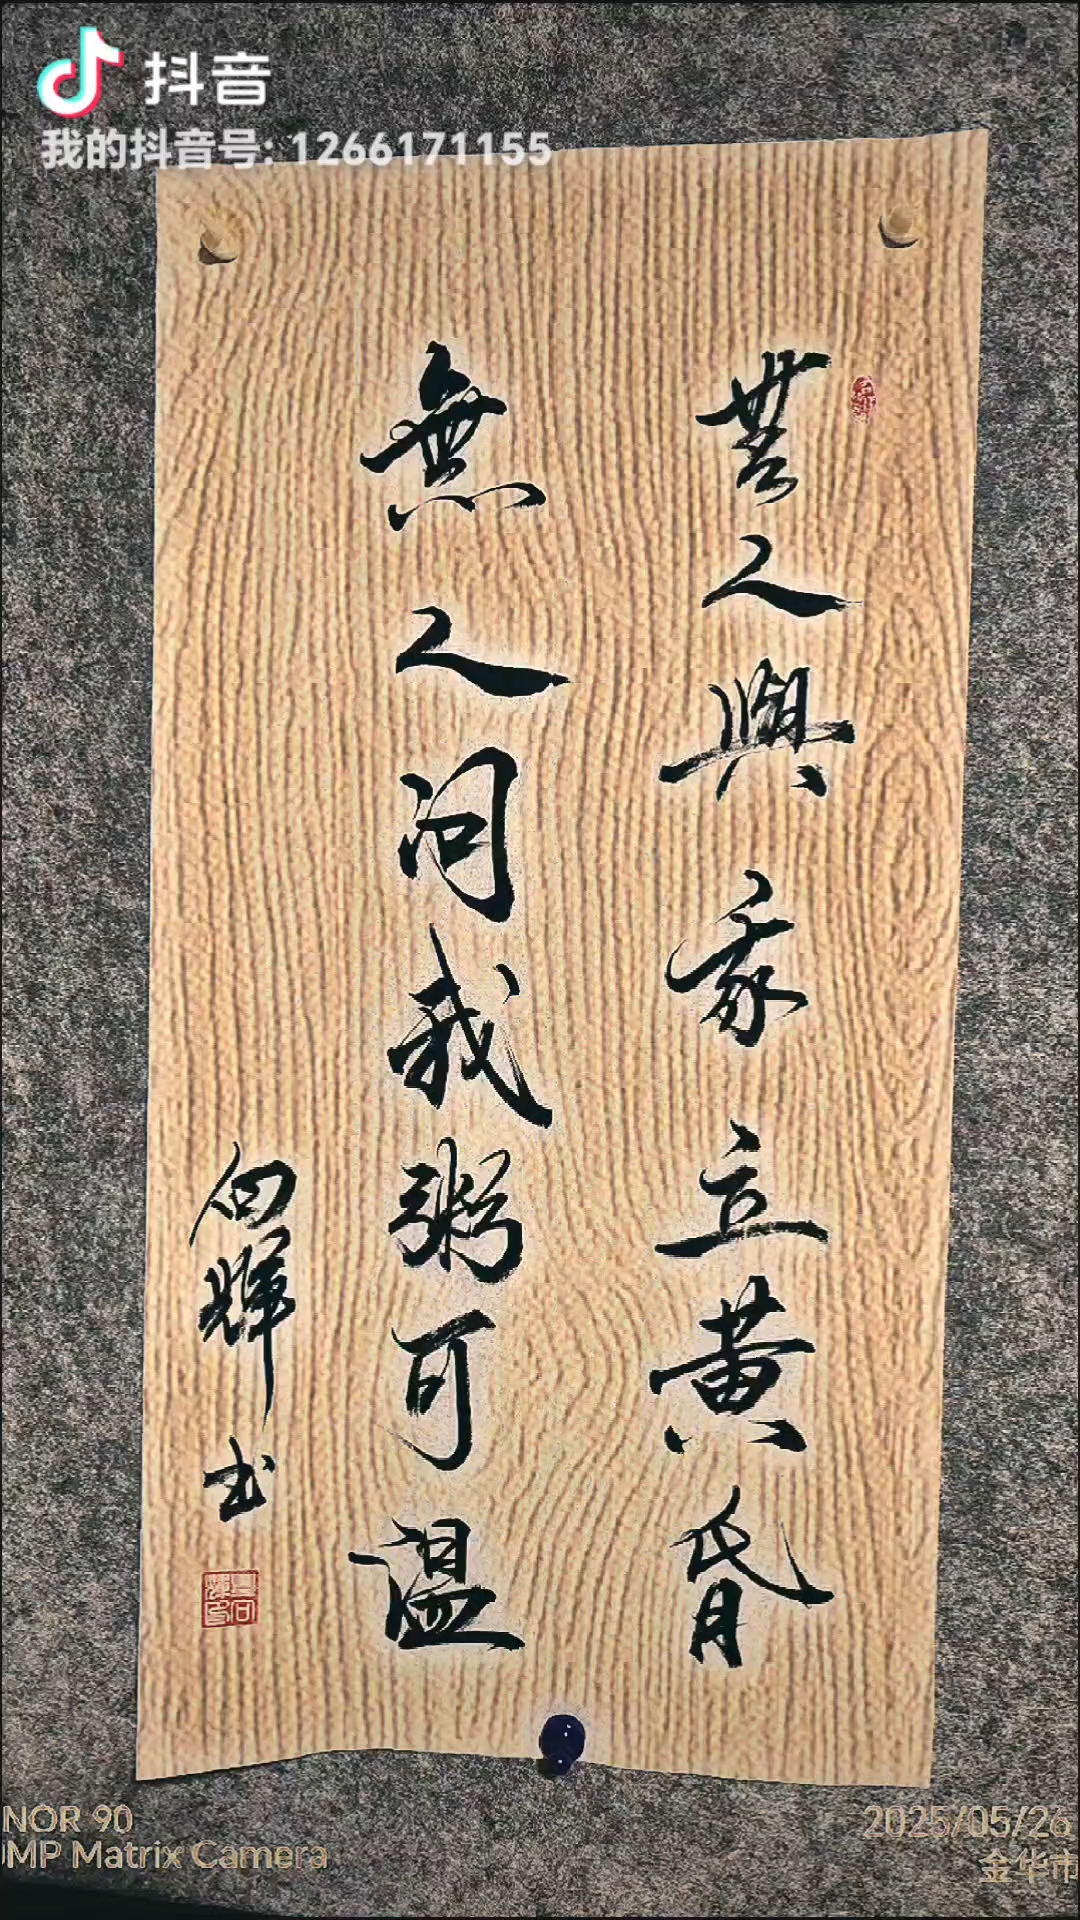 抖音
我的抖音号: 1266171155
無人與我立黃昏
無人问我粥可温
向輝书
NOR 90
MP Matrix Camera
2025/05/26
金华市